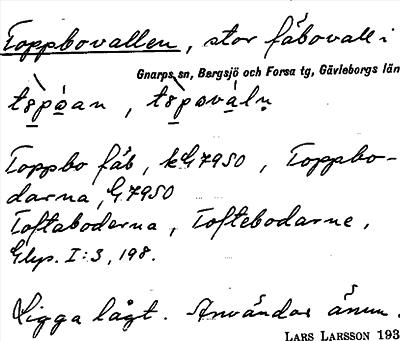 Toppbovallen, stor fäbovall i
Gnarps sn, Bergsjö och Forsa tg, Gävleborgs län
Toppbo fäb, k G7950, Toppbo-
darna, G7950
Toftaboderna, Toftebodarne,
Glyp. I:3, 198.
Ligga lågt. Användas ännu.
LARS LARSSON 193